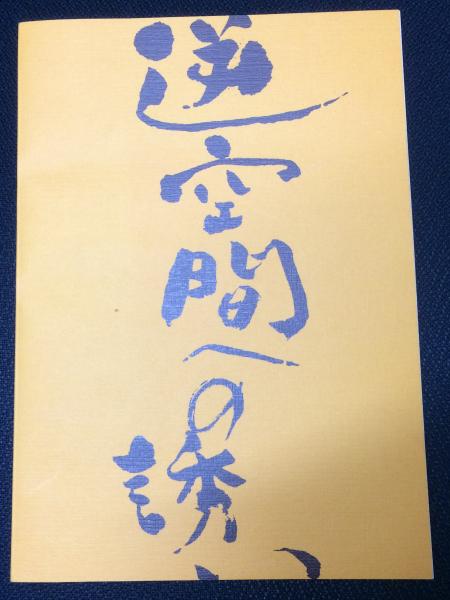 逆空間への誘い